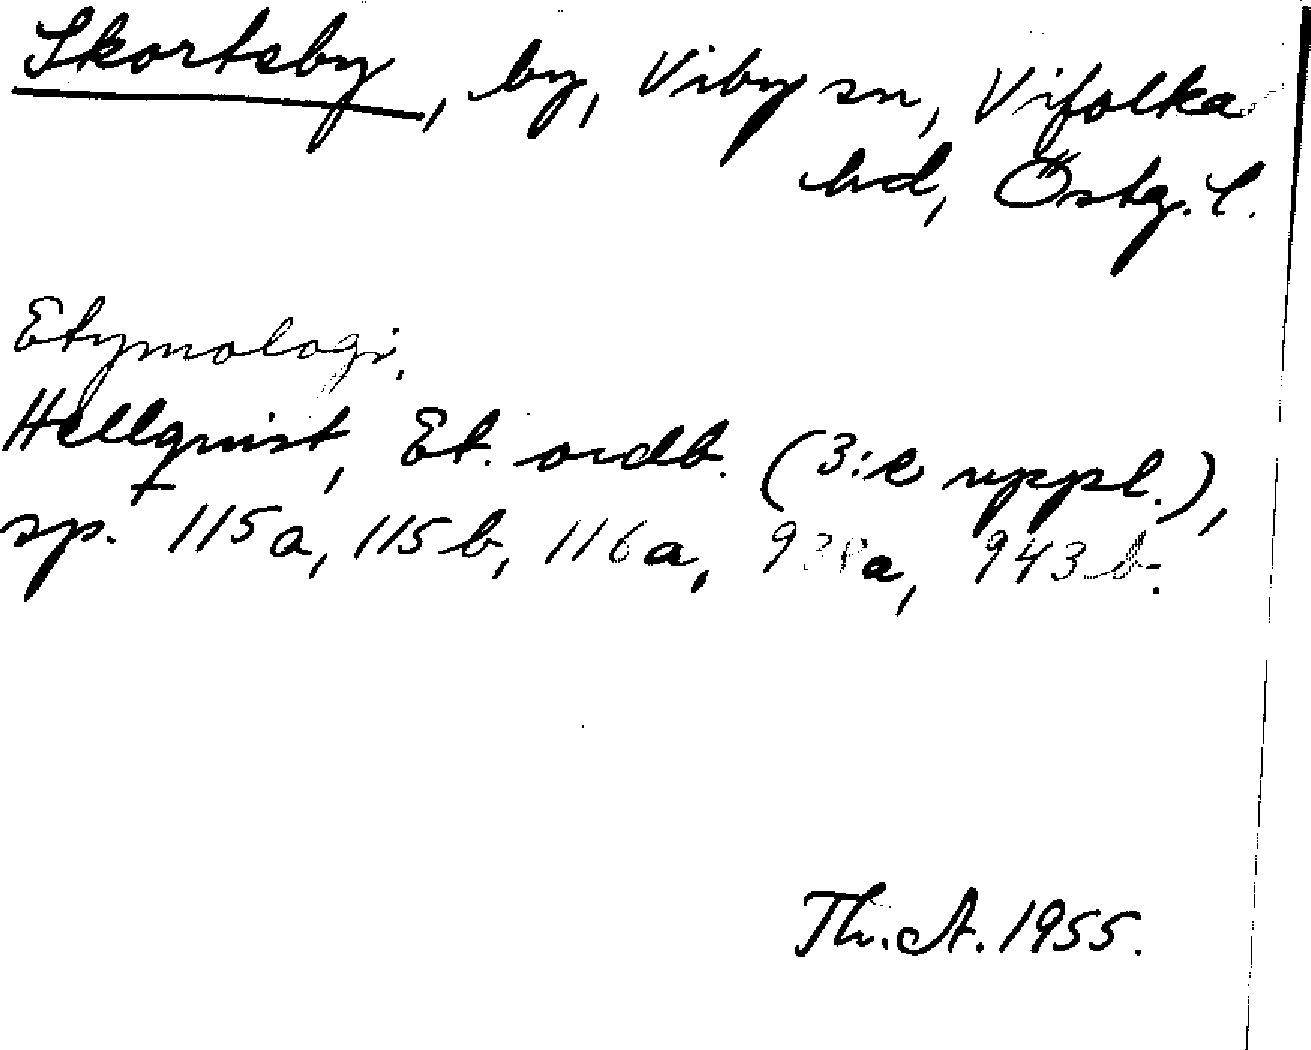 Skortsby, by, Viby sn, Vifolka
hd, Östg. l.
Etymologi.
Hellquist, Et. ordb. (3:e uppl.),
sp. 115a, 115b, 116a, 938a, 943b.
Th. A. 1955.